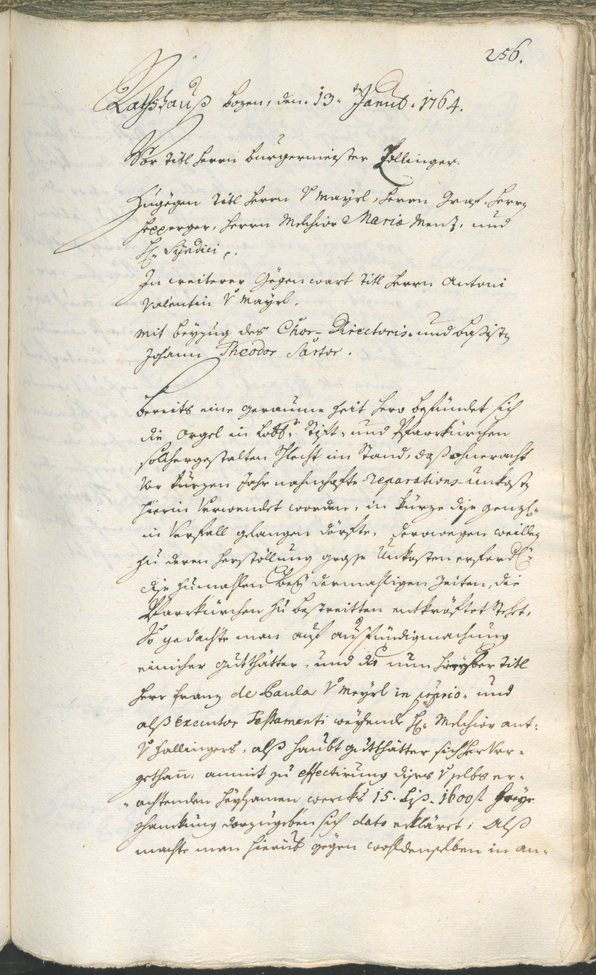 256.
Rathshauß Bozen, den 13. Janua. 1764.
Vor titl Herrn Burgermeister Zallinger.
Zugegen titl Herrn V. Mayrl, Herrn Graf, Herrn
Hepperger, Herrn Melchior Maria Menz, und
H: Syndici.
In weiterer Gegenwart titl Herrn Antoni
Valentin V. Mayrl.
Mit beyzug des Chor-Directoris und Bassistn
Johann Theodor Sartor.
Bereits eine geraume Zeit hero befündet sich
die Orgel in Stift- und Pfarrkürchen
solchergestalten schlecht im Stand, daß ohneracht
vor kurzen Jahrn namhafte reparations-unkostn
hierin verwendet worden, in kürze dise genzl:
in Verfall glangen därfte, derowegen weillen
zu deren herstöllung grosse Unkosten erforderl:
die zumahlen bey dermahligen Zeiten, die
Pfarrkürchen zu bestreitten entkräftet stehet,
So gedachte man auf ausfündigmachung
einicher gutthätter, und da nun hierüber titl
Herr Franz de Paula V. Mayrl in proprio und
alß Executor Testamenti weylend H: Melchior Ant:
V. Zallingers, alß Haubt gutthätter sich hervor-
gethan, anmit zu effectuirung dises selbs er-
achtenden heylsamen wercks 1600 fl
schanckung vorzugeben sich dato erkläret; Alß
machte man hierüb gegen wohldenselben in an-